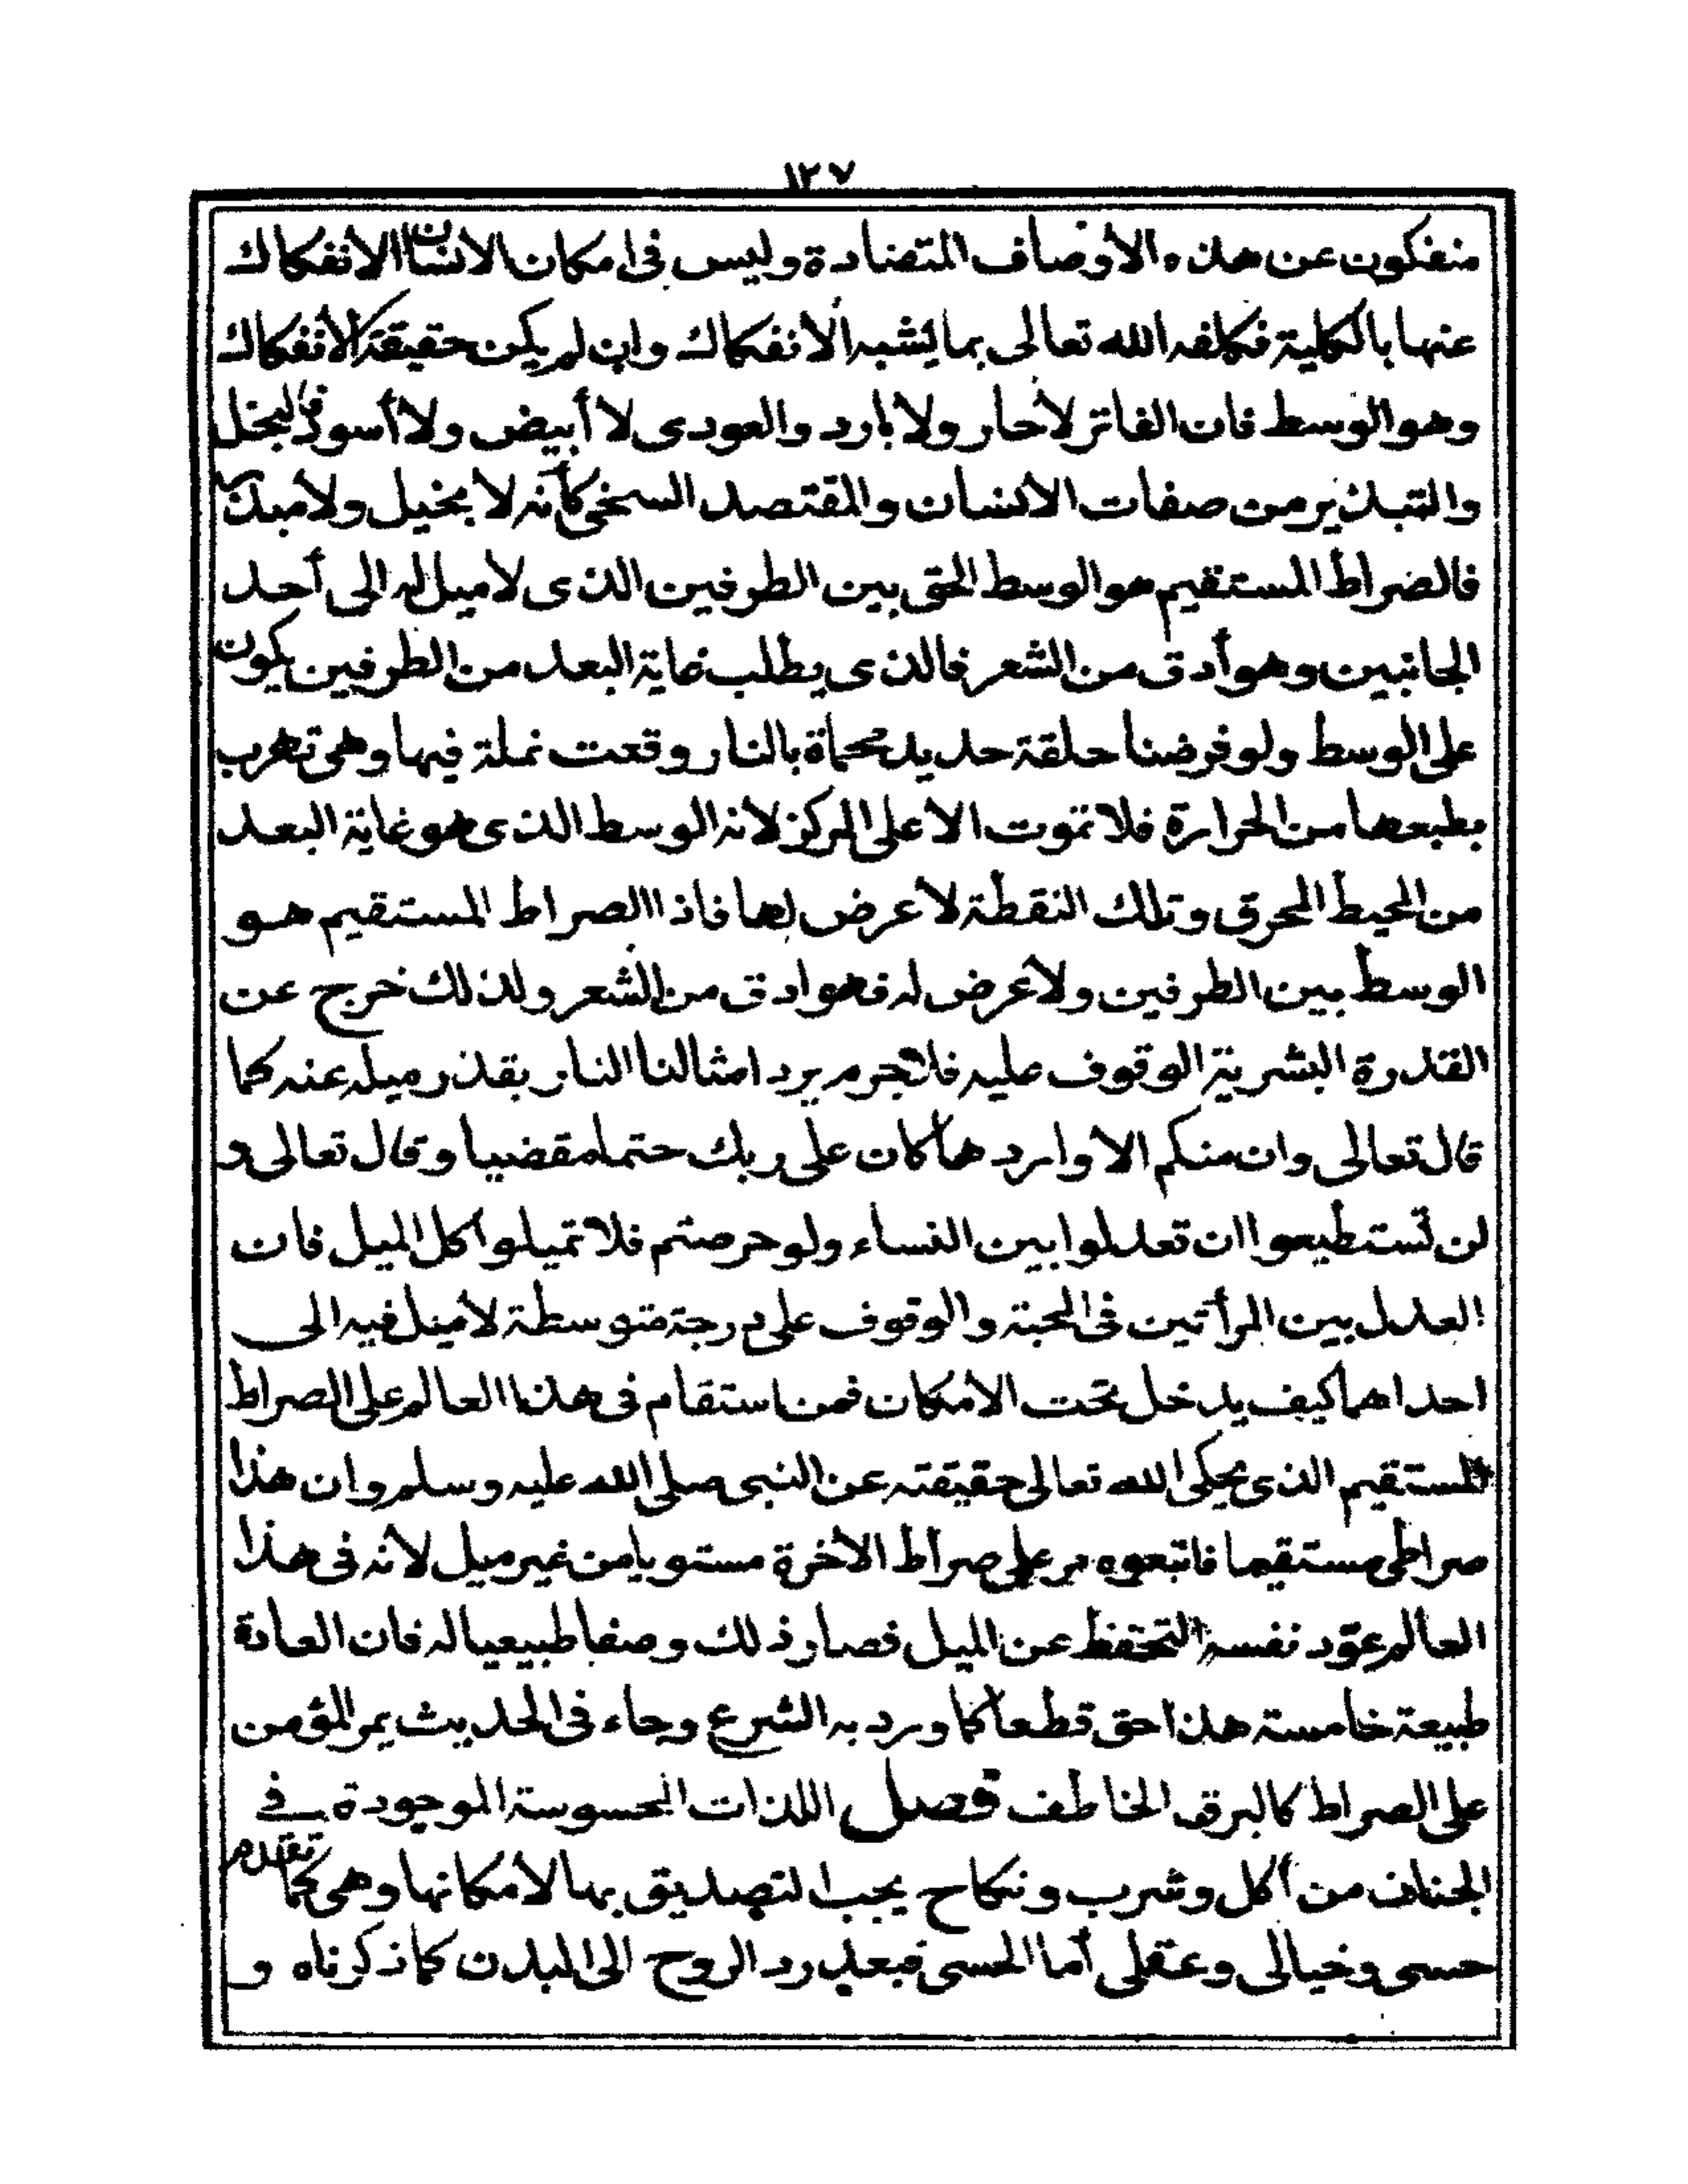 ١٢٧
منفكون عن هذه الأوصاف المتضادة وليس فى امكان الانسان الانفكاك
عنها بالكلية فكلفه الله تعالى بما يشبه الانفكاك وان لم يكن حقيقة الانفكاك
وهو الوسط فان الفاتر لا حار ولا بارد والعودى لا أبيض ولا أسود فالبخل
والتبذير من صفات الانسان والمقتصد السخى كأنه لا بخيل ولا مبذر
فالصراط المستقيم هو الوسط الحق بين الطرفين الذى لا ميل له الى أحد
الجانبين وهو أدق من الشعر فالذى يطلب غاية البعد من الطرفين يكون
على الوسط ولو فرضنا حلقة حديد محماة بالنار وقعت نملة فيها وهى تهرب
بطبعها من الحرارة فلا تموت الا على المركز لانه الوسط الذى هو غاية البعد
من المحيط المحرق وتلك النقطة لا عرض لها فاذا الصراط المستقيم هو
الوسط بين الطرفين ولا عرض له فهو ادق من الشعر ولذلك خرج عن
القدرة البشرية الوقوف عليه فلا جرم يرد امثالنا النار بقدر ميله عنه كما
قال تعالى وان منكم الا واردها كان على ربك حتما مقضيا وقال تعالى و
لن تستطيعوا ان تعدلوا بين النساء ولو حرصتم فلا تميلوا كل الميل فان
العدل بين المرأتين فى المحبة والوقوف على درجة متوسطة لا ميل فيه الى
احداهما كيف يدخل تحت الامكان فمن استقام فى هذا العالم على الصراط
المستقيم الذى يحكى الله تعالى حقيقته عن النبى صلى الله عليه وسلم وان هذا
صراطى مستقيما فاتبعوه مر على صراط الآخرة مستويا من غير ميل لانه فى هذا
العالم عوّد نفسه التحفظ عن الميل فصار ذلك وصفا طبيعيا له فان العادة
طبيعة خامسة هذا حق قطعا كما ورد به الشرع وجاء فى الحديث يمر المؤمن
على الصراط كالبرق الخاطف فصل اللذات المحسوسة الموجودة فے
الجنان من أكل وشرب ونكاح يجب التصديق بها لامكانها وهى كما تقدم
حسى وخيالى وعقلى أما الحسى فبعد رد الروح الى البدن كما ذكرناه و